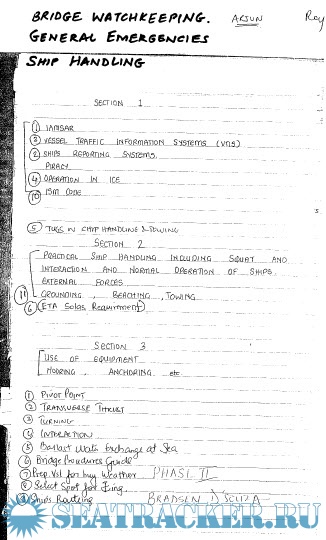 BRIDGE WATCHKEEPING. ARJUN Roy
GENERAL EMERGENCIES
SHIP HANDLING
SECTION 1
① IAMSAR
③ VESSEL TRAFFIC INFORMATION SYSTEMS (VTIS)
② SHIPS REPORTING SYSTEMS.
PIRACY
④ OPERATION IN ICE
⑩ ISM CODE
⑤ TUGS IN SHIP HANDLING & TOWING
SECTION 2
PRACTICAL SHIP HANDLING INCLUDING SQUAT AND
INTERACTION AND NORMAL OPERATION OF SHIPS.
EXTERNAL FORCES
⑪ GROUNDING, BEACHING, TOWING
⑥ (ETA Solas Requirement)
SECTION 3
USE OF EQUIPMENT
MOORING, ANCHORING. etc
① PIVOT POINT
② TRANSVERSE THRUST
③ TURNING
④ INTERACTION
⑤ Ballast Water Exchange at Sea
⑥ Bridge Procedures Guide
⑦ Prep. Vsl for hvy Weather PHASE II
⑧ Select Spot for
⑨ Ships Routeing BRADSEN D'SOUZA
SEATRACKER.RU